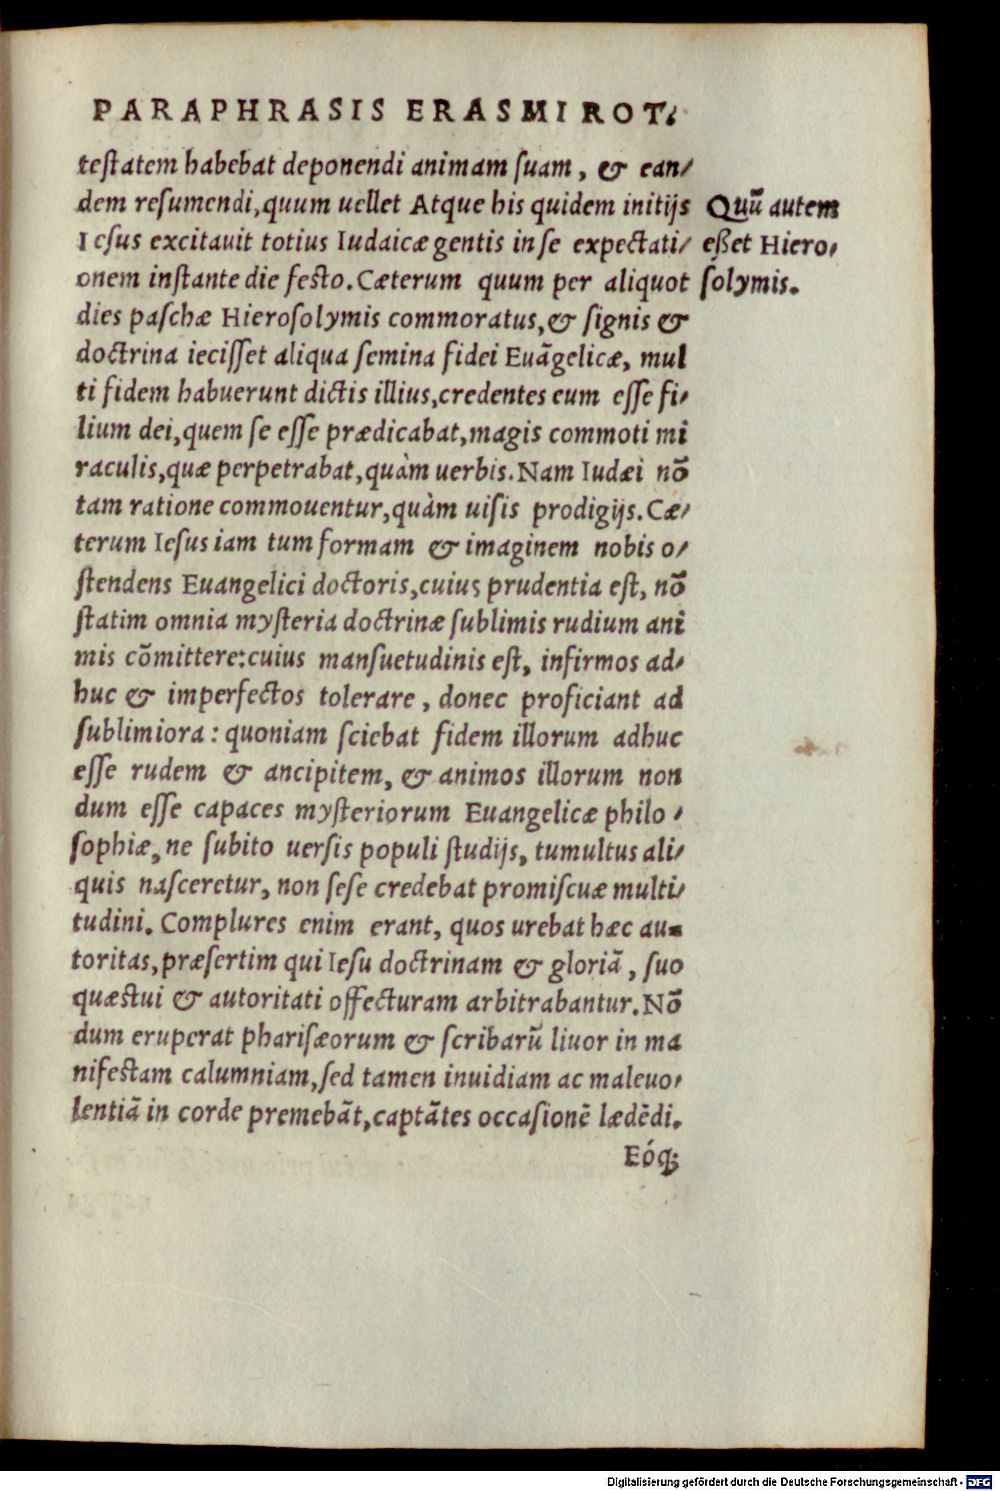 PARAPHRASIS ERASMI ROT.
teſtatem habebat deponendi animam ſuam, & ean/
dem reſumendi, quum uellet Atque his quidem initijs
Ieſus excitauit totius Iudaicæ gentis in ſe expectati/
onem inſtante die feſto. Cæterum quum per aliquot
dies paſchæ Hieroſolymis commoratus, & ſignis &
doctrina ieciſſet aliqua ſemina fidei Euãgelicæ, mul
ti fidem habuerunt dictis illius, credentes eum eſſe fi/
lium dei, quem ſe eſſe prædicabat, magis commoti mi
raculis, quæ perpetrabat, quàm uerbis. Nam Iudæi nõ
tam ratione commouentur, quàm uiſis prodigijs. Cæ/
terum Ieſus iam tum formam & imaginem nobis o/
ſtendens Euangelici doctoris, cuius prudentia eſt, nõ
ſtatim omnia myſteria doctrinæ ſublimis rudium ani
mis cõmittere: cuius manſuetudinis eſt, infirmos ad/
huc & imperfectos tolerare, donec proficiant ad
ſublimiora: quoniam ſciebat fidem illorum adhuc
eſſe rudem & ancipitem, & animos illorum non
dum eſſe capaces myſteriorum Euangelicæ philo/
ſophiæ, ne ſubito uerſis populi ſtudijs, tumultus ali/
quis naſceretur, non ſeſe credebat promiſcuæ multi/
tudini. Complures enim erant, quos urebat hæc au-
toritas, præſertim qui Ieſu doctrinam & gloriã, ſuo
quæſtui & autoritati offecturam arbitrabantur. Nõ
dum eruperat phariſæorum & ſcribarũ liuor in ma
nifeſtam calumniam, ſed tamen inuidiam ac maleuo/
lentiã in corde premebãt, captãtes occaſionẽ lædẽdi.
Eóq;
Quũ autem
eßet Hiero/
ſolymis.
Digitalisierung gefördert durch die Deutsche Forschungsgemeinschaft - DFG